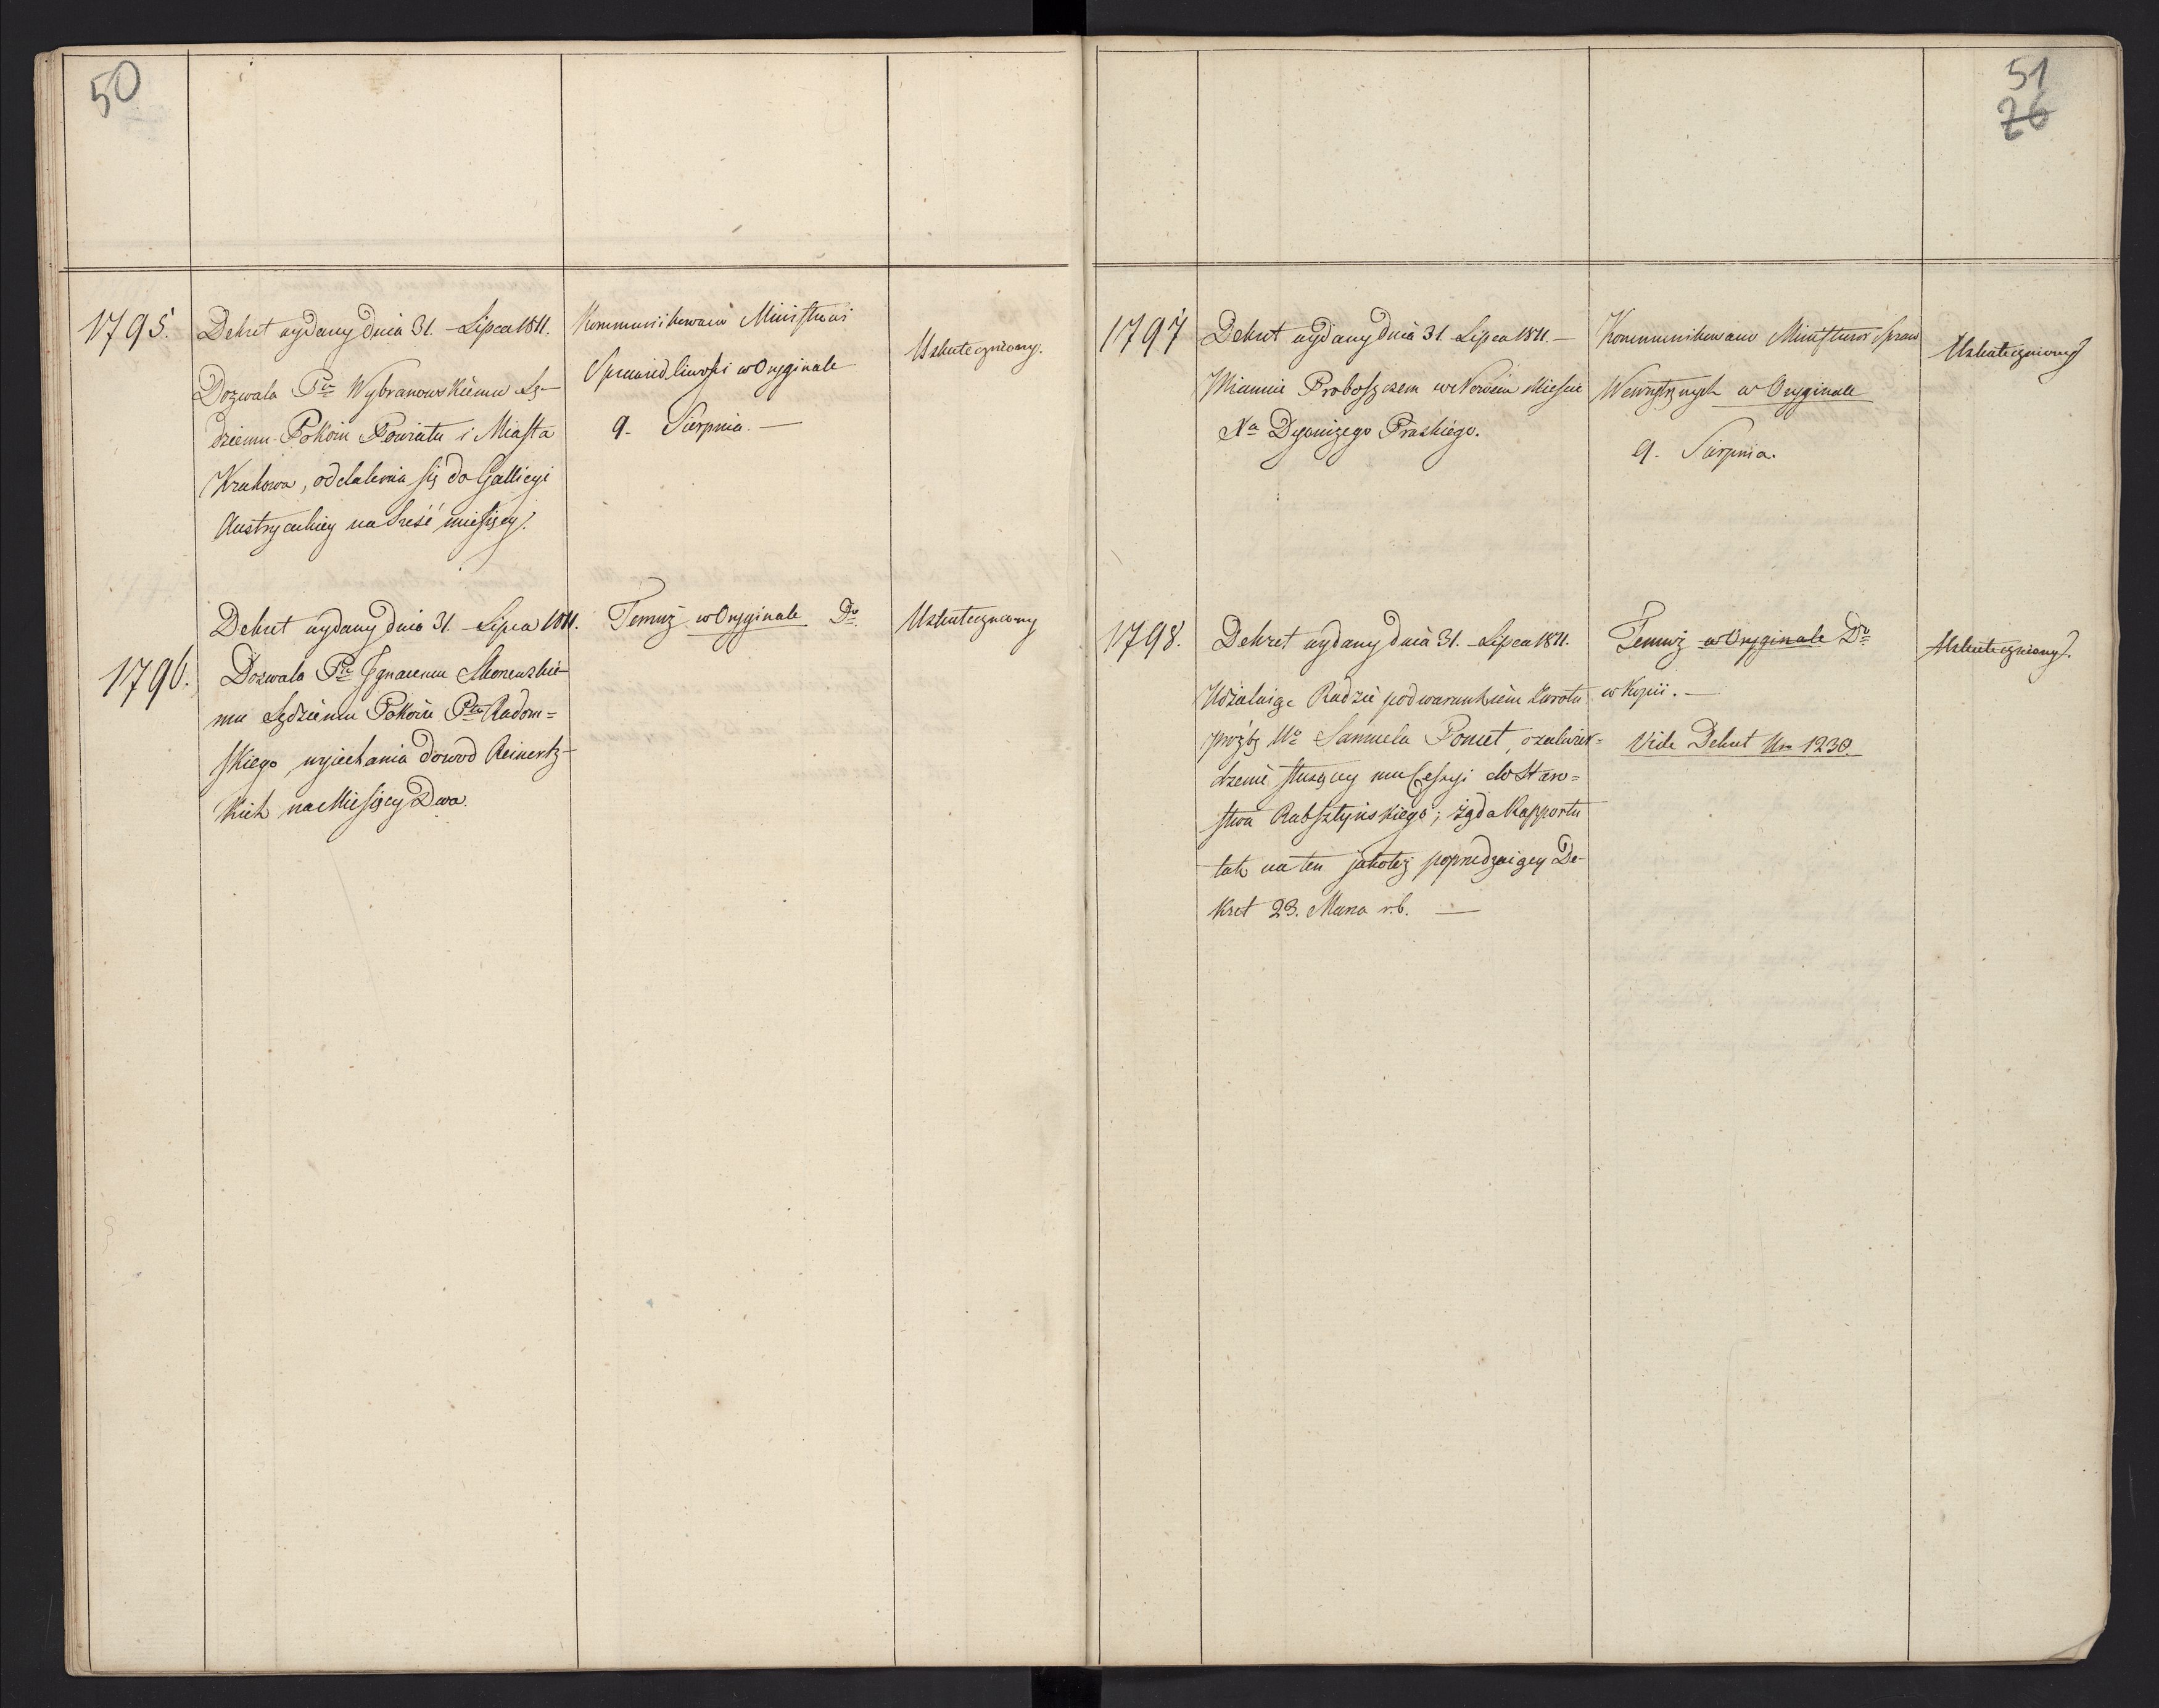 50
1795.
Dekret wydany dnia 31. Lipca 1811.
Dozwala Pu Wybranowskiemu Sę-
dziemu Pokoiu Powiatu i Miasta
Krakowa, oddalenia się do Gallicyi
Austryackiey na sześć miesięcy.
Kommunikowano Ministrowi
Sprawiedliwości w Oryginale
9. Sierpnia. —
Uskuteczniony.
1796.
Dekret wydany dnia 31. Lipca 1811.
Dozwala Pu Ignacemu
mu Sędziemu Pokoiu Ptu Radom=
skiego wyiechania do wod Reinertz-
kich na Miesięcy Dwa.
Temuż w Oryginale Do
Uskuteczniony
51
26
1797
Dekret wydany dnia 31. Lipca 1811. —
Mianuie Proboszczem w Nowem Mieście
Xa Dyonizego Praskiego.
Kommunikowano Ministrowi Spraw
Wewnętrznych w Oryginale
9. Sierpnia.
Uskuteczniony
1798.
Dekret wydany dnia 31. Lipca 1811.
Udzielaiąc Radzie pod warunkiem zwrotu
prozbę Wo Samuela Poniet, o zatwier=
dzenie służącey mu Cessyi do Staro=
stwa Rabsztyńskiego; żąda Rapportu
tak na ten jakoteż poprzedzaiący De-
kret 23. Marca r.b. —
Temuż w Oryginale Do
w Kopii. —
Vide Dekret Nro 1230.
Uskuteczniony.